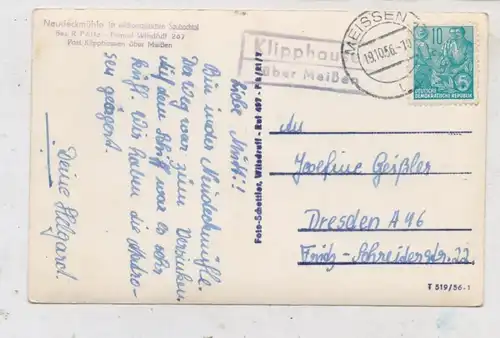 Neudeckmühle im wildromantischen Saubachtal
Bes. R. Pöritz · Fernruf Wilsdruff 247
Post Klipphausen über Meißen
Klipphau
über Meißen
MEISSEN
19.10.56.-10
10
DEUTSCHE
DEMOKRATISCHE REPUBLIK
Liebe Mutti!
Bin in der Neudeckmühle.
Der Weg war zum Versinken.
Auf dem Schiff war es sehr
kühl. Wir haben die Matro-
sen geärgert.
Deine Helgard.
Foto-Schettler, Wilsdruff - Ruf 497 -
An
Josefine Geißler
Dresden A 96
Fritz-Schreiterstr. 22
T 519/56-1